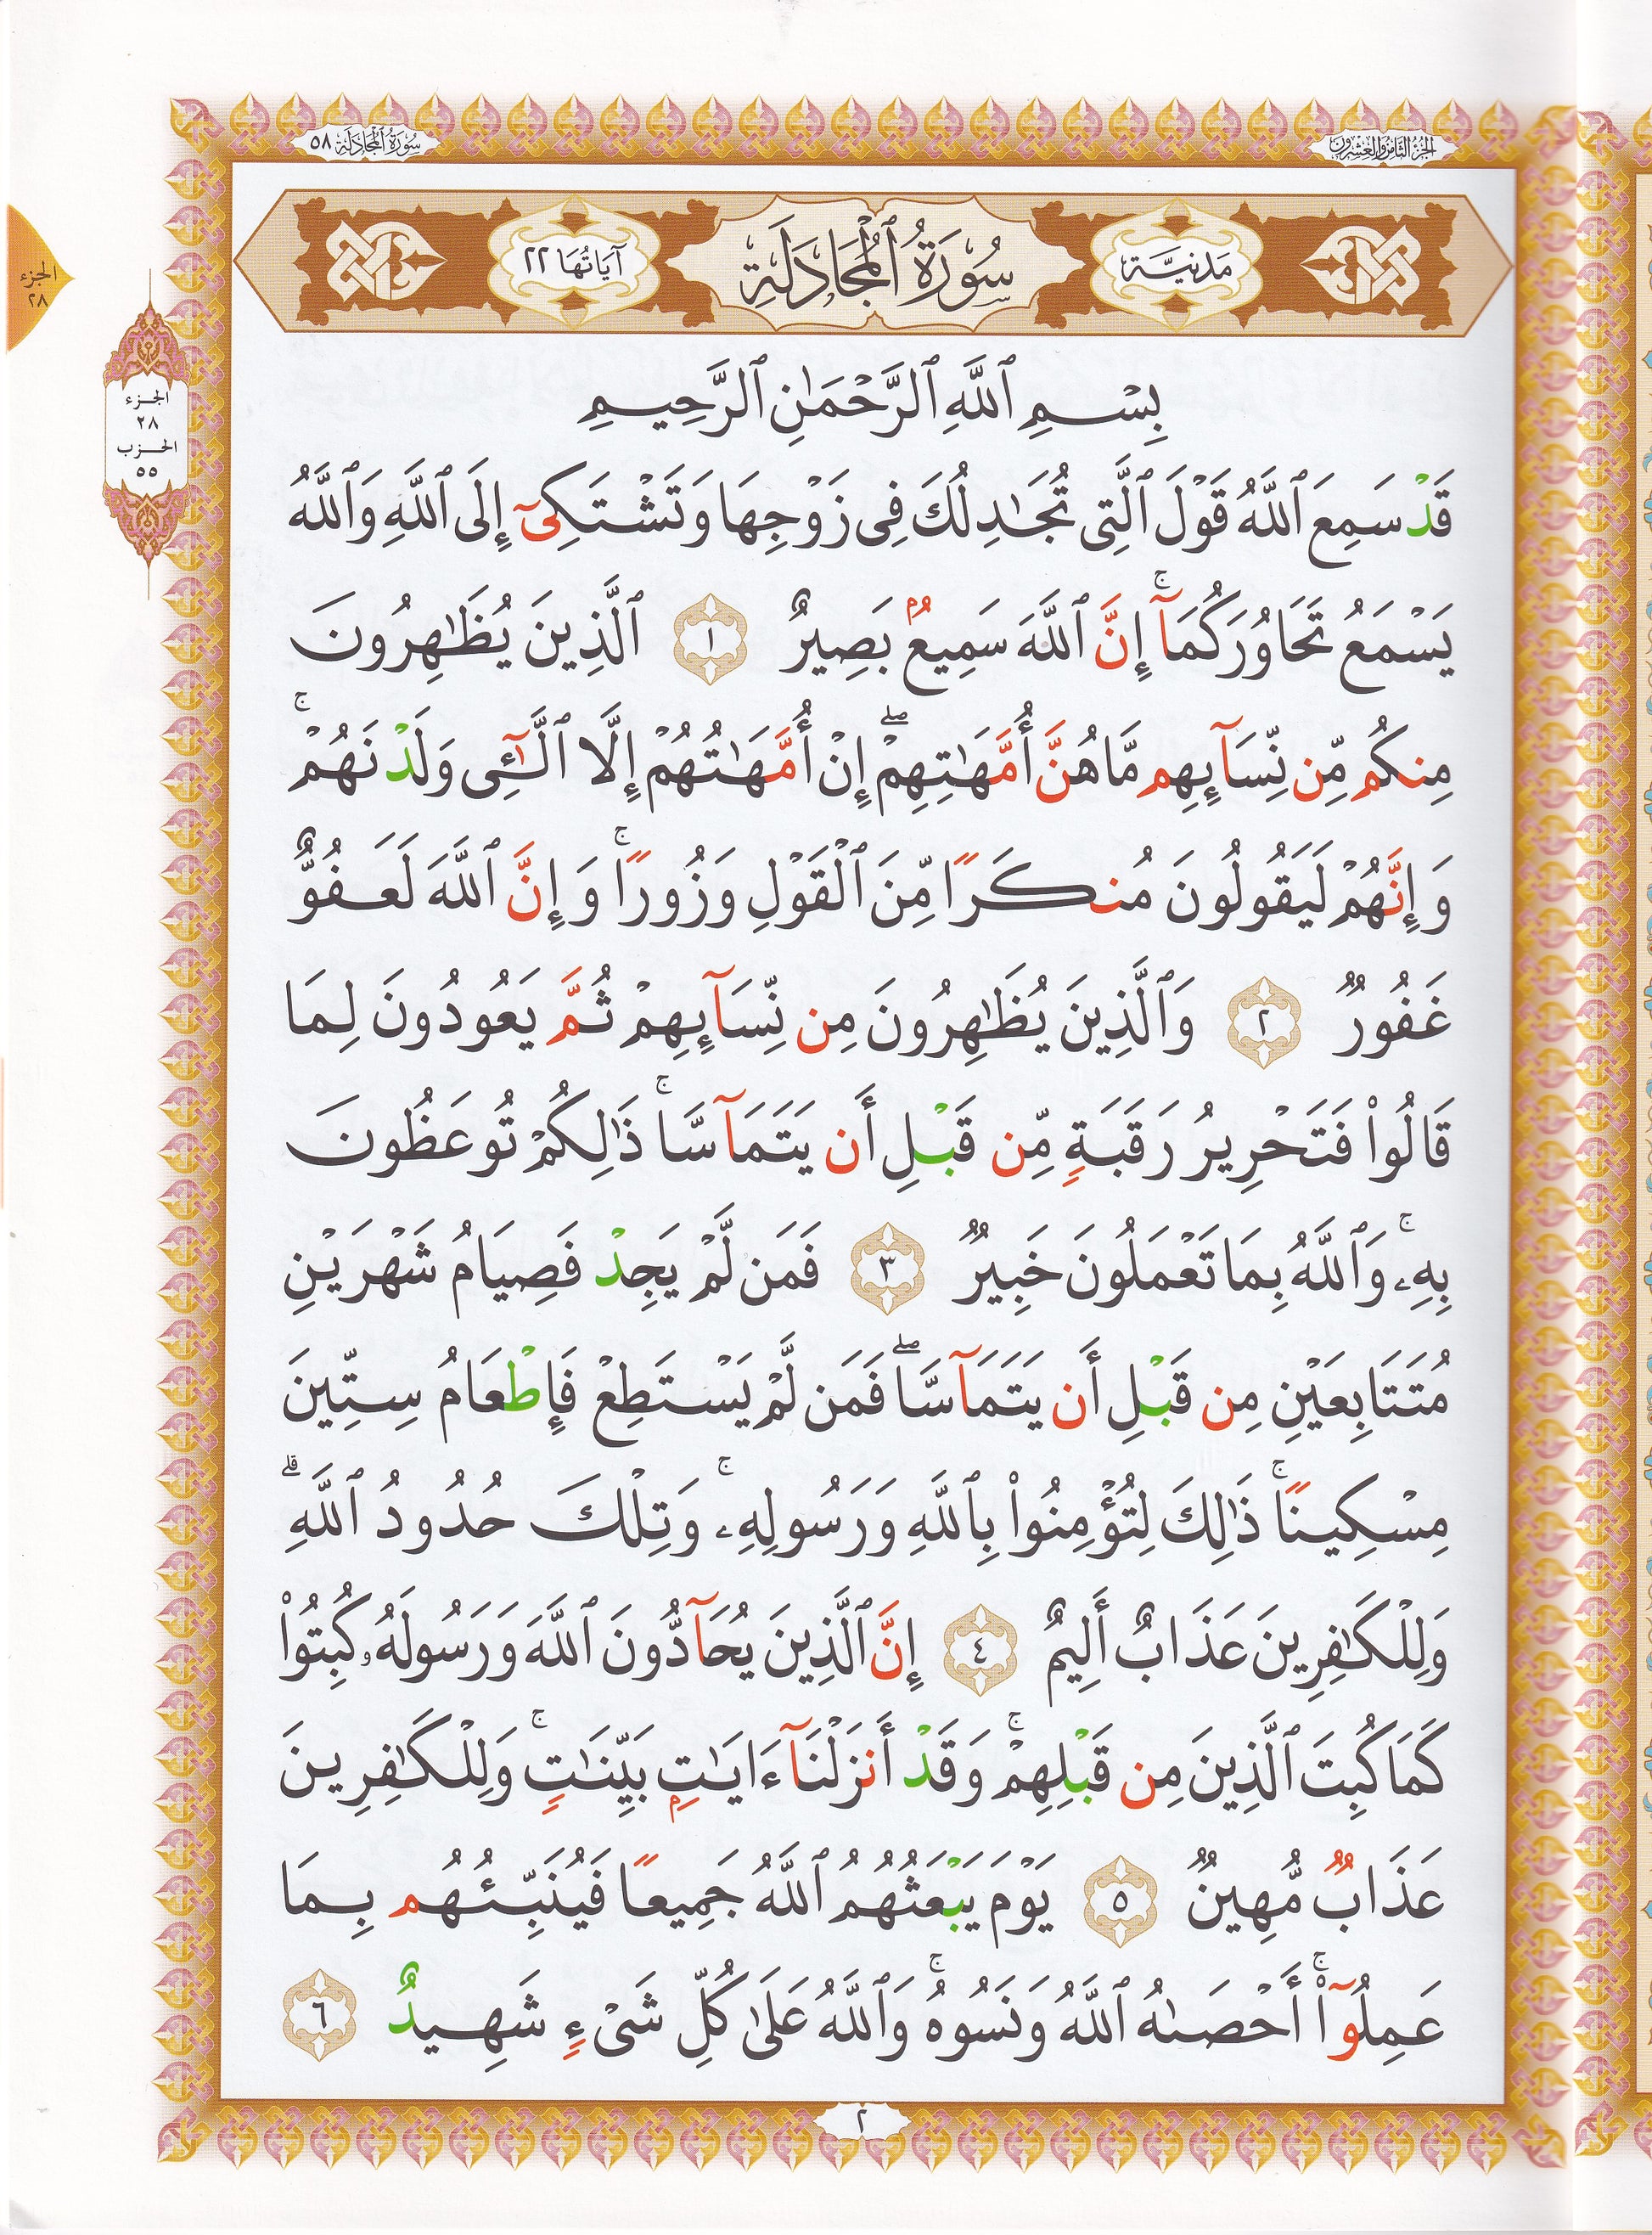 الجزء الثامن والعشرون
سُورَةُ ٱلْمُجَادَلَةِ ٥٨
مَدَنِيَّة
سُورَةُ ٱلْمُجَادَلَةِ
آيَاتُهَا ٢٢
الجزء
٢٨
الجزء
٢٨
الحزب
٥٥
بِسْمِ ٱللَّهِ ٱلرَّحْمَٰنِ ٱلرَّحِيمِ
قَدْ سَمِعَ ٱللَّهُ قَوْلَ ٱلَّتِى تُجَٰدِلُكَ فِى زَوْجِهَا وَتَشْتَكِىٓ إِلَى ٱللَّهِ وَٱللَّهُ
يَسْمَعُ تَحَاوُرَكُمَآ ۚ إِنَّ ٱللَّهَ سَمِيعٌۢ بَصِيرٌ ١ ٱلَّذِينَ يُظَٰهِرُونَ
مِنكُم مِّن نِّسَآئِهِم مَّا هُنَّ أُمَّهَٰتِهِمْ ۖ إِنْ أُمَّهَٰتُهُمْ إِلَّا ٱلَّٰٓـِٔى وَلَدْنَهُمْ ۚ
وَإِنَّهُمْ لَيَقُولُونَ مُنكَرًا مِّنَ ٱلْقَوْلِ وَزُورًا ۚ وَإِنَّ ٱللَّهَ لَعَفُوٌّ
غَفُورٌ ٢ وَٱلَّذِينَ يُظَٰهِرُونَ مِن نِّسَآئِهِمْ ثُمَّ يَعُودُونَ لِمَا
قَالُوا۟ فَتَحْرِيرُ رَقَبَةٍ مِّن قَبْلِ أَن يَتَمَآسَّا ۚ ذَٰلِكُمْ تُوعَظُونَ
بِهِۦ ۚ وَٱللَّهُ بِمَا تَعْمَلُونَ خَبِيرٌ ٣ فَمَن لَّمْ يَجِدْ فَصِيَامُ شَهْرَيْنِ
مُتَتَابِعَيْنِ مِن قَبْلِ أَن يَتَمَآسَّا ۖ فَمَن لَّمْ يَسْتَطِعْ فَإِطْعَامُ سِتِّينَ
مِسْكِينًا ۚ ذَٰلِكَ لِتُؤْمِنُوا۟ بِٱللَّهِ وَرَسُولِهِۦ ۚ وَتِلْكَ حُدُودُ ٱللَّهِ ۗ
وَلِلْكَٰفِرِينَ عَذَابٌ أَلِيمٌ ٤ إِنَّ ٱلَّذِينَ يُحَآدُّونَ ٱللَّهَ وَرَسُولَهُۥ كُبِتُوا۟
كَمَا كُبِتَ ٱلَّذِينَ مِن قَبْلِهِمْ ۚ وَقَدْ أَنزَلْنَآ ءَايَٰتٍۭ بَيِّنَٰتٍ ۚ وَلِلْكَٰفِرِينَ
عَذَابٌ مُّهِينٌ ٥ يَوْمَ يَبْعَثُهُمُ ٱللَّهُ جَمِيعًا فَيُنَبِّئُهُم بِمَا
عَمِلُوٓا۟ ۚ أَحْصَىٰهُ ٱللَّهُ وَنَسُوهُ ۚ وَٱللَّهُ عَلَىٰ كُلِّ شَىْءٍ شَهِيدٌ ٦
٢